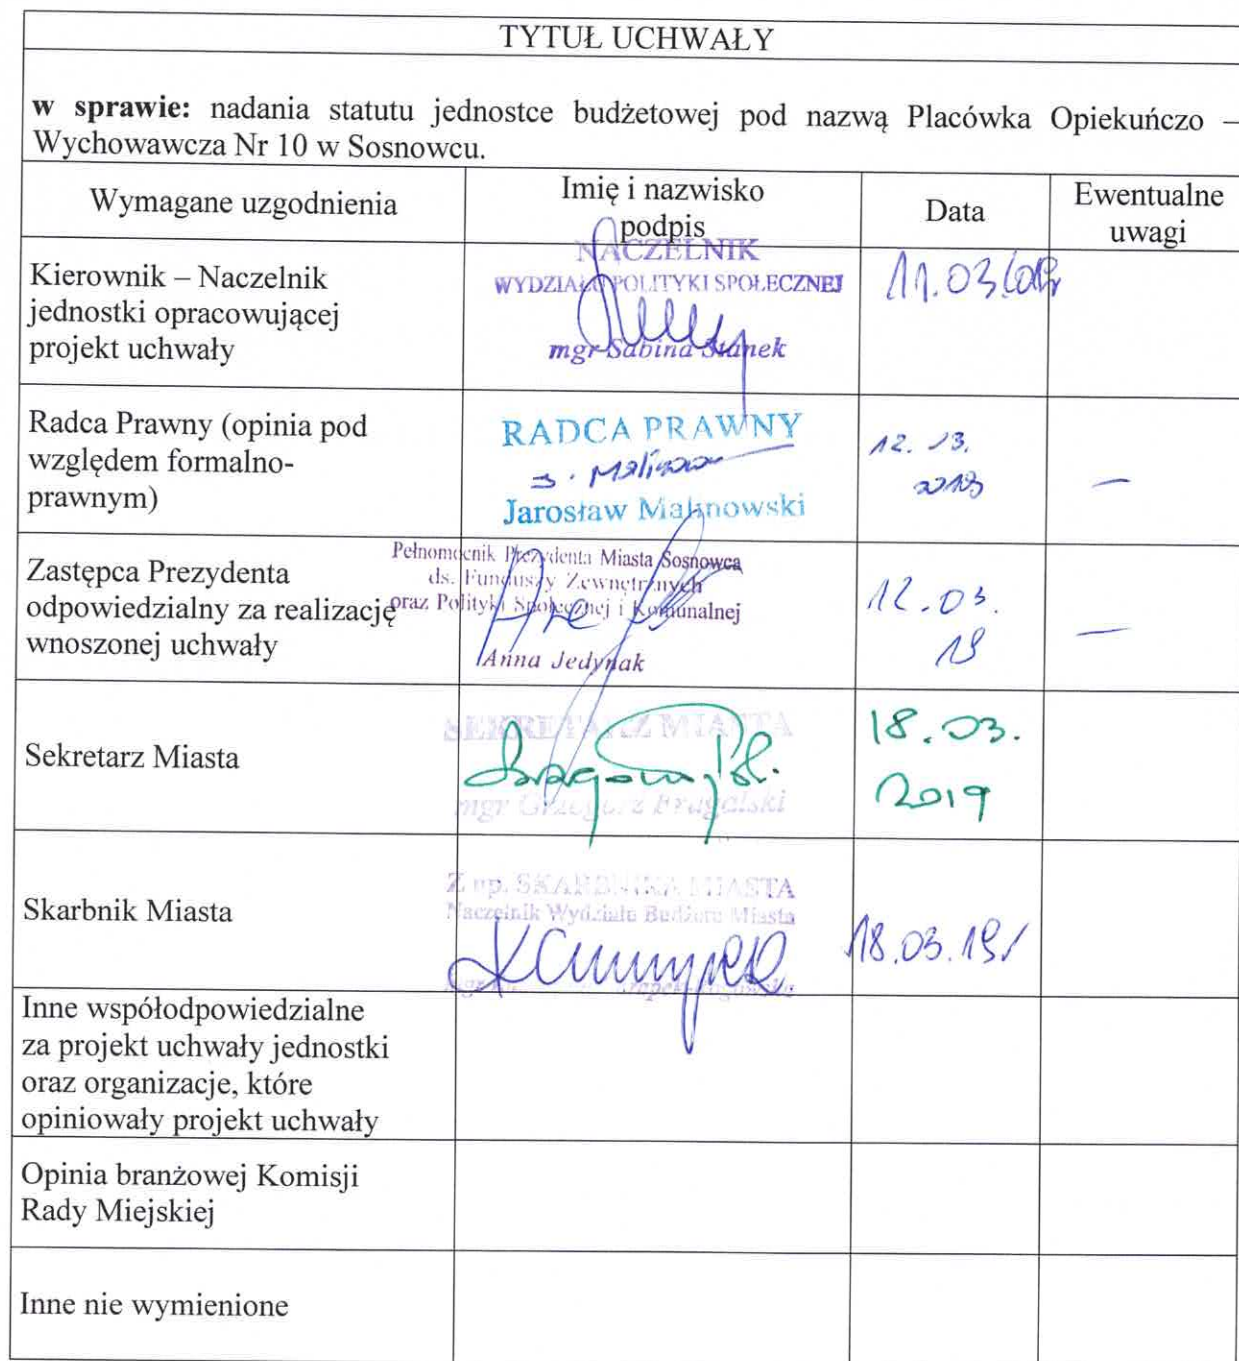 TYTUŁ UCHWAŁY
w sprawie: nadania statutu jednostce budżetowej pod nazwą Placówka Opiekuńczo –
Wychowawcza Nr 10 w Sosnowcu.
Wymagane uzgodnienia
Imię i nazwisko
podpis
Data
Ewentualne
uwagi
Kierownik – Naczelnik
jednostki opracowującej
projekt uchwały
NACZELNIK
WYDZIAŁU POLITYKI SPOŁECZNEJ
mgr Sabina Stanek
11.03
Radca Prawny (opinia pod
względem formalno-
prawnym)
RADCA PRAWNY
Jarosław Malinowski
12.
2019
–
Zastępca Prezydenta
odpowiedzialny za realizację
wnoszonej uchwały
Pełnomocnik Prezydenta Miasta Sosnowca
ds. Funduszy Zewnętrznych
oraz Polityki Społecznej i Komunalnej
Anna Jedynak
12.03.
19
–
Sekretarz Miasta
SEKRETARZ MIASTA
mgr Grzegorz Fragalski
18.03.
2019
Skarbnik Miasta
Z up. SKARBNIKA MIASTA
Naczelnik Wydziału Budżetu Miasta
18.03.19
Inne współodpowiedzialne
za projekt uchwały jednostki
oraz organizacje, które
opiniowały projekt uchwały
Opinia branżowej Komisji
Rady Miejskiej
Inne nie wymienione